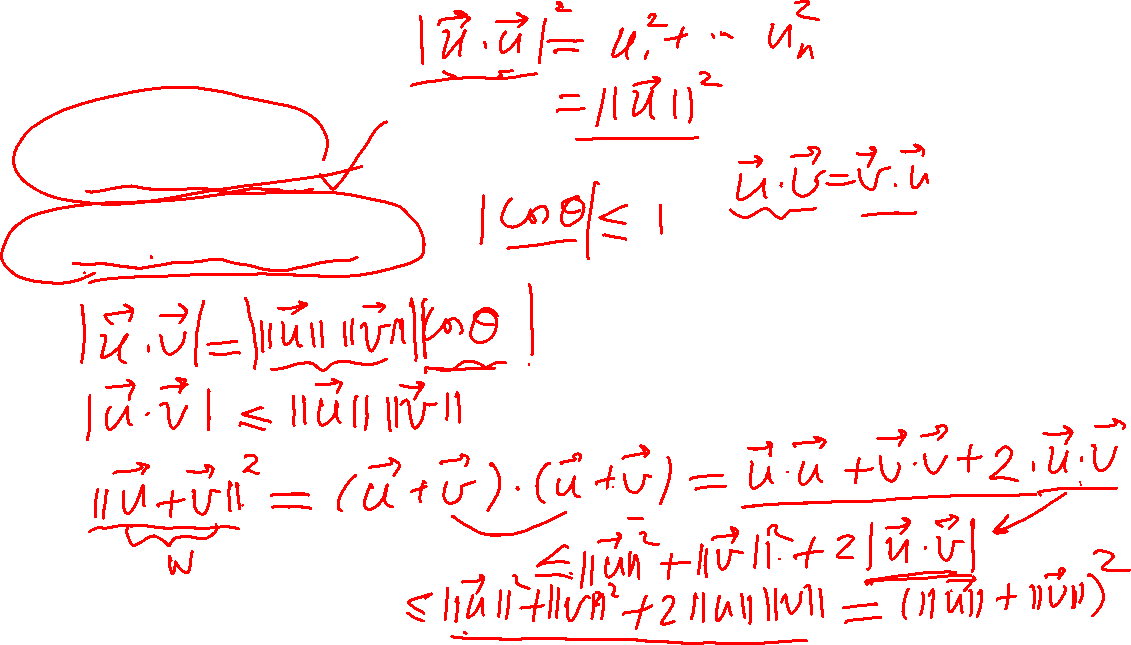 |u⃗·u⃗|² = u₁² + ·· uₙ²
= ||u⃗||²
u⃗·v⃗ = v⃗·u⃗
|cos θ| ≤ 1
|u⃗·v⃗| = |||u⃗|| ||v⃗|||cos θ|
|u⃗·v⃗| ≤ ||u⃗|| ||v⃗||
||u⃗+v⃗||² = (u⃗+v⃗)·(u⃗+v⃗) = u⃗·u⃗ + v⃗·v⃗ + 2·u⃗·v⃗
w
≤ ||u⃗||² + ||v⃗||² + 2|u⃗·v⃗|
≤ ||u⃗||² + ||v||² + 2||u|| ||v|| = (||u⃗|| + ||v⃗||)²